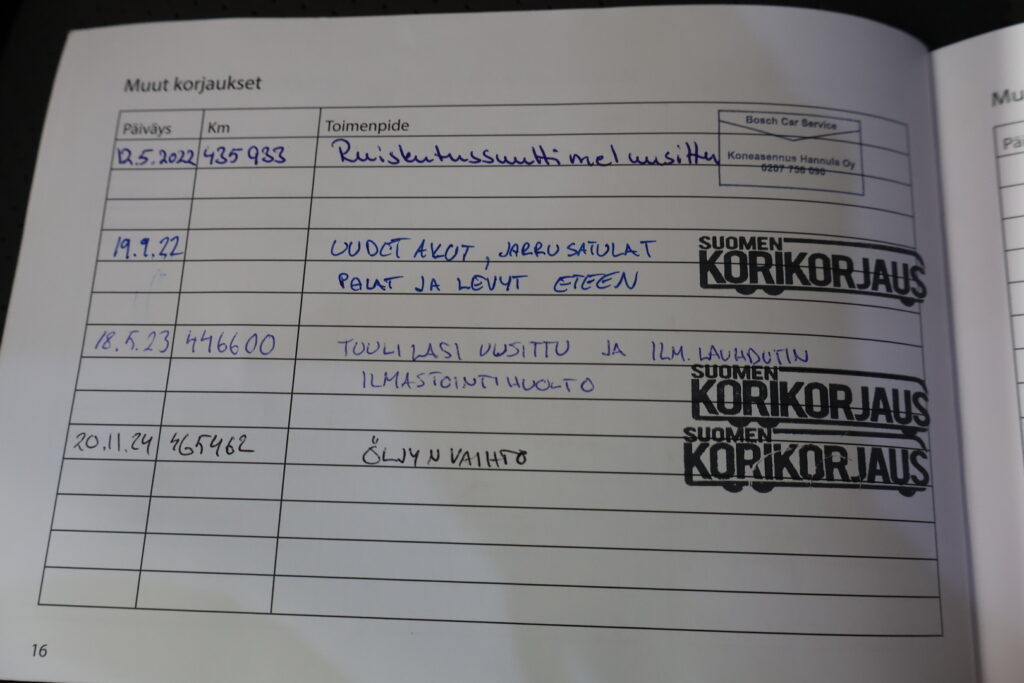 Muut korjaukset
Päiväys Km Toimenpide
Bosch Car Service
Koneasennus Hannula Oy
0207 756 090
12.5.2022 435 933 Ruiskutussuuttimet uusittu
19.9.22 UUDET AKUT, JARRUSATULAT
PALAT JA LEVYT ETEEN
SUOMEN
KORIKORJAUS
18.5.23 446600 TUULILASI UUSITTU JA ILM. LAUHDUTIN
ILMASTOINTIHUOLTO
SUOMEN
KORIKORJAUS
20.11.24 465462 ÖLJYNVAIHTO
SUOMEN
KORIKORJAUS
16
Mu
Pä